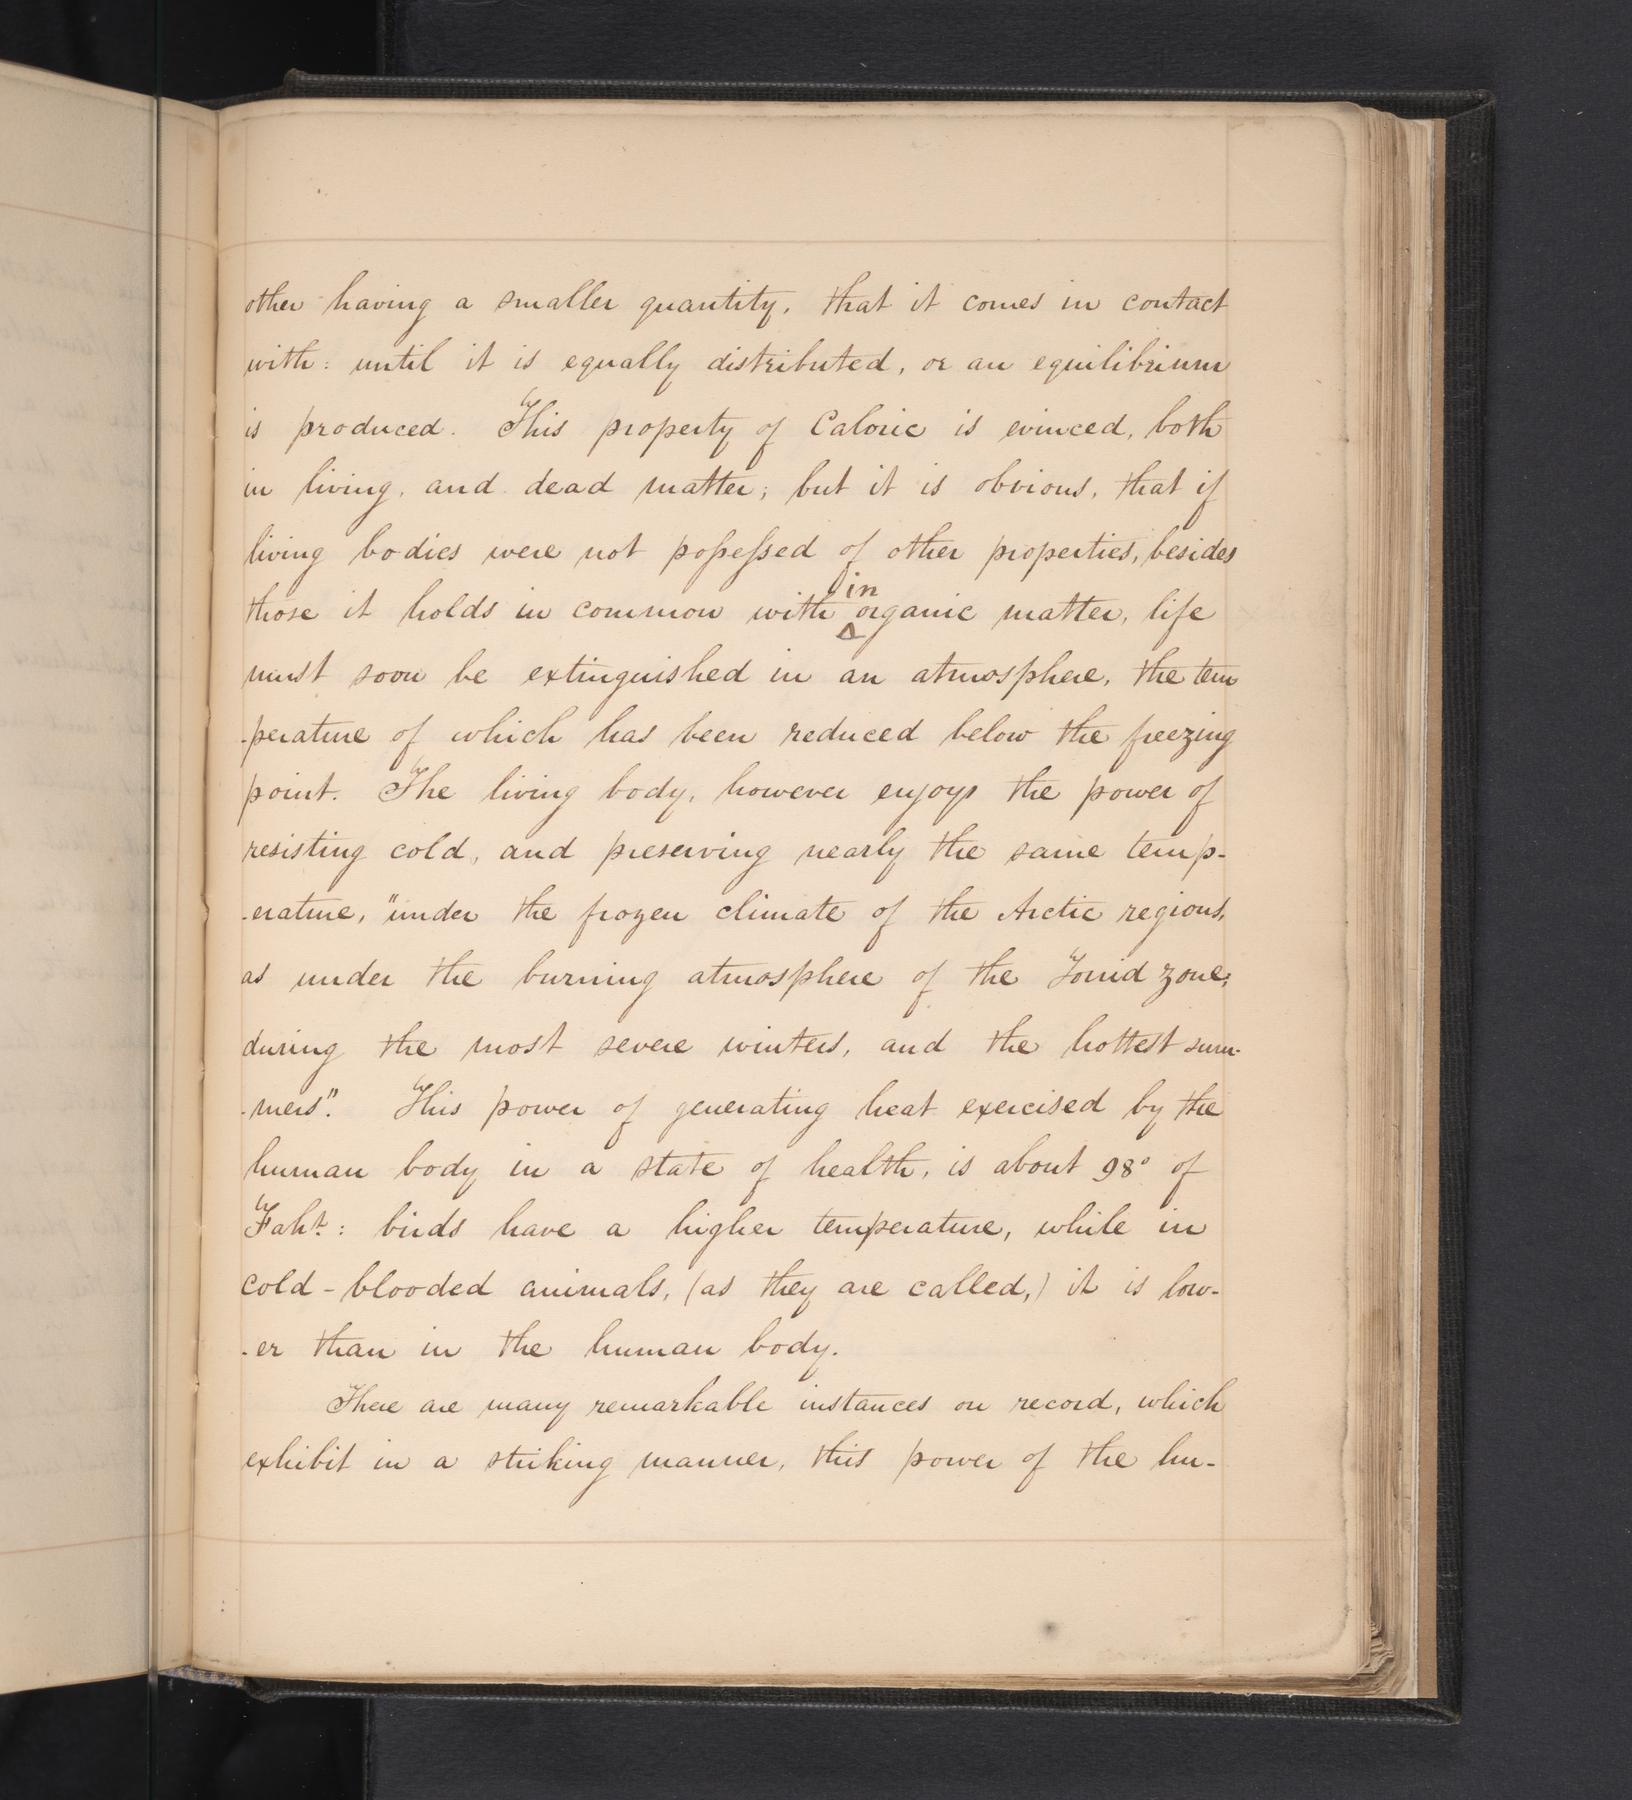 other having a smaller quantity, that it comes in contact
with: until it is equally distributed, or an equilibrium
is produced. This property of Caloric is evinced, both
in living, and dead matter; but it is obvious, that if
living bodies were not poſseſsed of other properties, besides
those it holds in common with inorganic matter, life
must soon be extinguished in an atmosphere, the tem
-perature of which has been reduced below the freezing
point. The living body, however enjoys the power of
resisting cold, and preserving nearly the same temp-
-erature, "under the frozen climate of the Arctic regions,
as under the burning atmosphere of the Torrid zone;
during the most severe winters, and the hottest sum-
-mers". This power of generating heat exercised by the
human body in a state of health, is about 98° of
Faht.: birds have a higher temperature, while in
cold-blooded animals, (as they are called,) it is low-
-er than in the human body.
There are many remarkable instances on record, which
exhibit in a striking manner, this power of the hu-